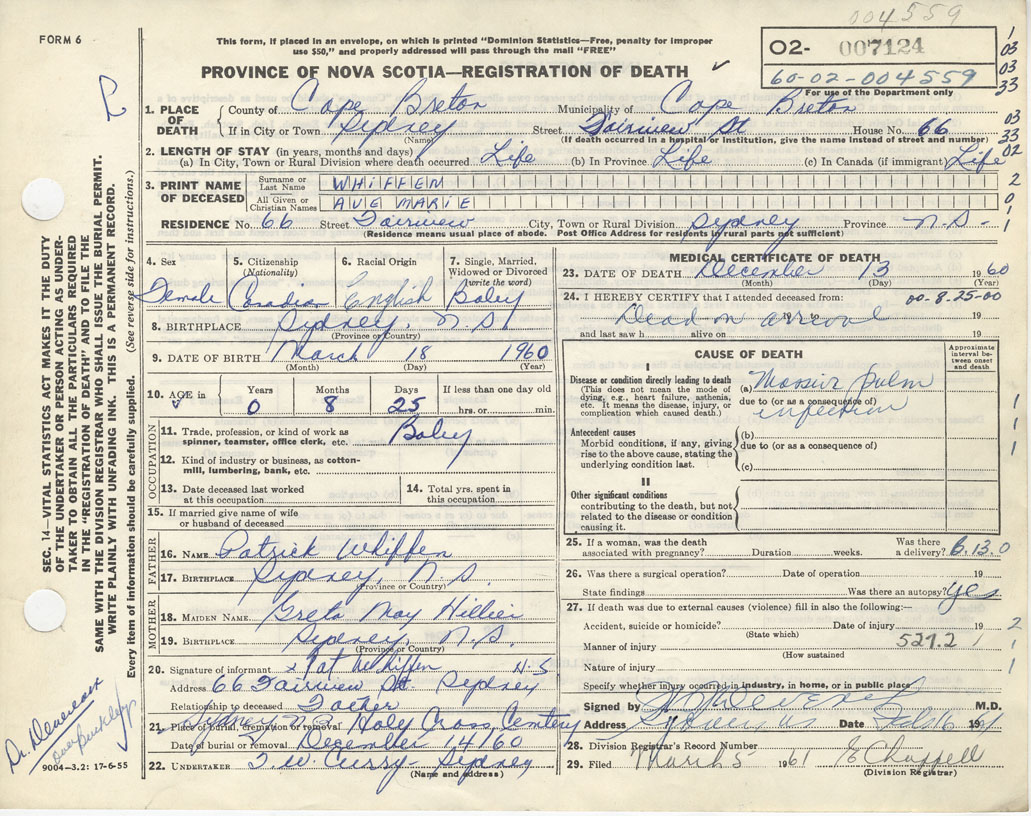 004559
FORM 6
This form, if placed in an envelope, on which is printed "Dominion Statistics—Free, penalty for improper
use $50," and properly addressed will pass through the mail "FREE"
O2- 007124
60-02-004559
For use of the Department only
PROVINCE OF NOVA SCOTIA—REGISTRATION OF DEATH
1. PLACE OF DEATH County of Cape Breton Municipality of Cape Breton
If in City or Town Sydney Street Fairview St House No. 66
(Name) (If death occurred in a hospital or institution, give the name instead of street and number)
2. LENGTH OF STAY (in years, months and days)
(a) In City, Town or Rural Division where death occurred Life (b) In Province Life (c) In Canada (if immigrant) Life
3. PRINT NAME OF DECEASED Surname or Last Name WHIFFEN
All Given or Christian Names AVE MARIE
RESIDENCE No. 66 Street Fairview City, Town or Rural Division Sydney Province N.S.
(Residence means usual place of abode. Post Office Address for residents in rural parts not sufficient)
4. Sex Female
5. Citizenship (Nationality) Canadian
6. Racial Origin English
7. Single, Married, Widowed or Divorced (write the word) Baby
8. BIRTHPLACE Sydney, N.S.
(Province or Country)
9. DATE OF BIRTH March 18 1960
(Month) (Day) (Year)
10. AGE in Years 0 Months 8 Days 25 If less than one day old hrs. or min.
OCCUPATION
11. Trade, profession, or kind of work as spinner, teamster, office clerk, etc. Baby
12. Kind of industry or business, as cotton-mill, lumbering, bank, etc.
13. Date deceased last worked at this occupation
14. Total yrs. spent in this occupation
15. If married give name of wife or husband of deceased
FATHER
16. NAME Patrick Whiffen
17. BIRTHPLACE Sydney, N.S.
(Province or Country)
MOTHER
18. MAIDEN NAME Greta May Hillier
19. BIRTHPLACE Sydney, N.S.
(Province or Country)
20. Signature of informant x Pat Whiffen
Address 66 Fairview St Sydney N.S
Relationship to deceased Father
21. Place of burial, cremation or removal Sydney N.S Holy Cross Cemetery
Date of burial or removal December 14/60
22. UNDERTAKER T.W. Curry - Sydney
(Name and address)
MEDICAL CERTIFICATE OF DEATH
23. DATE OF DEATH December 13 1960
(Month) (Day) (Year)
24. I HEREBY CERTIFY that I attended deceased from: 00-8-25-00
Dead on arrival 19 to 19
and last saw h alive on 19
CAUSE OF DEATH
Approximate interval between onset and death
I
Disease or condition directly leading to death
(This does not mean the mode of dying, e.g., heart failure, asthenia, etc. It means the disease, injury, or complication which caused death.)
(a) Massive pulm
due to (or as a consequence of)
infection
Antecedent causes
Morbid conditions, if any, giving rise to the above cause, stating the underlying condition last.
(b)
due to (or as a consequence of)
(c)
II
Other significant conditions
contributing to the death, but not related to the disease or condition causing it.
25. If a woman, was the death associated with pregnancy? Duration weeks. Was there a delivery? 6.13.0
26. Was there a surgical operation? Date of operation 19
State findings Was there an autopsy? yes
27. If death was due to external causes (violence) fill in also the following:—
Accident, suicide or homicide? Date of injury 19
(State which)
Manner of injury 527.2
(How sustained
Nature of injury
Specify whether injury occurred in industry, in home, or in public place
Signed by M.D.
Address Date Feb 16 1961
28. Division Registrar's Record Number
29. Filed March 5 1961 E Chappell
(Division Registrar)
SEC. 14—VITAL STATISTICS ACT MAKES IT THE DUTY
OF THE UNDERTAKER OR PERSON ACTING AS UNDER-
TAKER TO OBTAIN ALL THE PARTICULARS REQUIRED
IN THE "REGISTRATION OF DEATH" AND FILE THE
SAME WITH THE DIVISION REGISTRAR WHO SHALL ISSUE THE BURIAL PERMIT.
WRITE PLAINLY WITH UNFADING INK. THIS IS A PERMANENT RECORD.
Every item of information should be carefully supplied. (See reverse side for instructions.)
Dr. Devereux
9004—3.2: 17-6-55
1
03
03
33
03
33
02
2
0
1
1
1
1
1
2
1
1